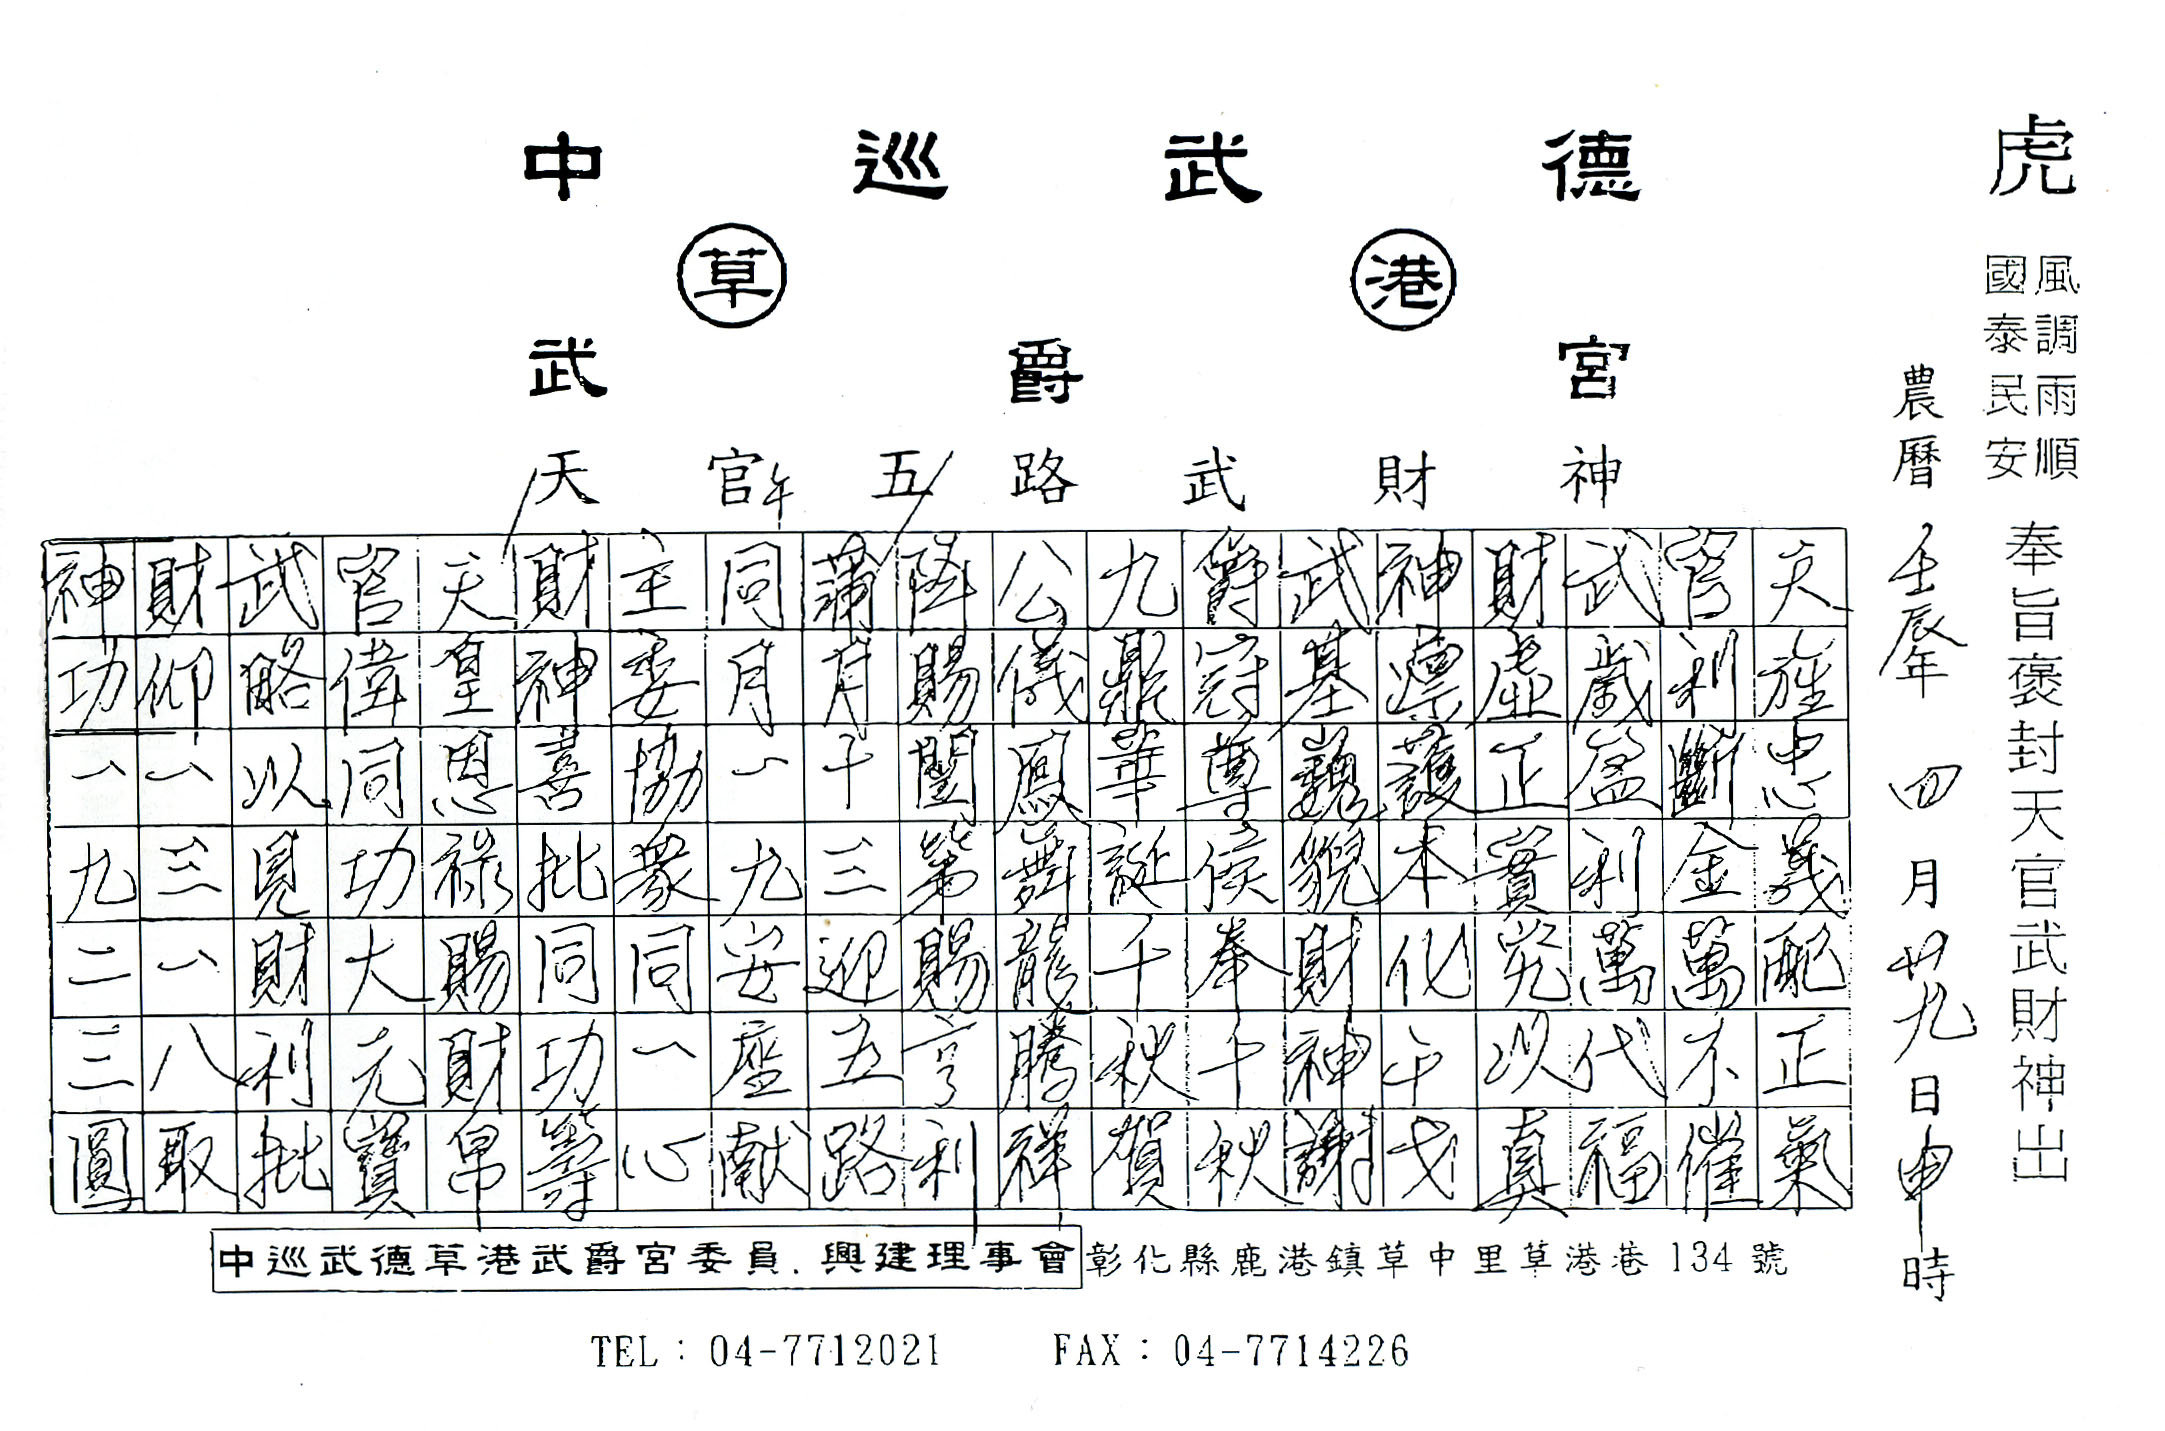 虎
風調雨順
國泰民安
奉旨褒封天官武財神出
農曆壬辰年四月廿九日申時
中巡武德
草港
武爵宮
天官五路武財神
午
天旌忠義配正氣
官利斷金萬不催
武歲盈利萬代福
財虛正實究以真
神凜護本化干戈
武基巍貌財神謝
爵冠尊侯奉千秋
九鼎華誕千秋賀
公儀鳳舞龍騰祥
賜閣第賜亨利
蒲月十三迎五路
同月一九安座献
主委協眾同一心
財神喜批同功籌
天皇恩祿賜財帛
官偉同功大元寶
武略以見財利批
財仰一三一八取
神功一九二三圓
中巡武德草港武爵宮委員.興建理事會
彰化縣鹿港鎮草中里草港巷134號
TEL：04-7712021 FAX：04-7714226